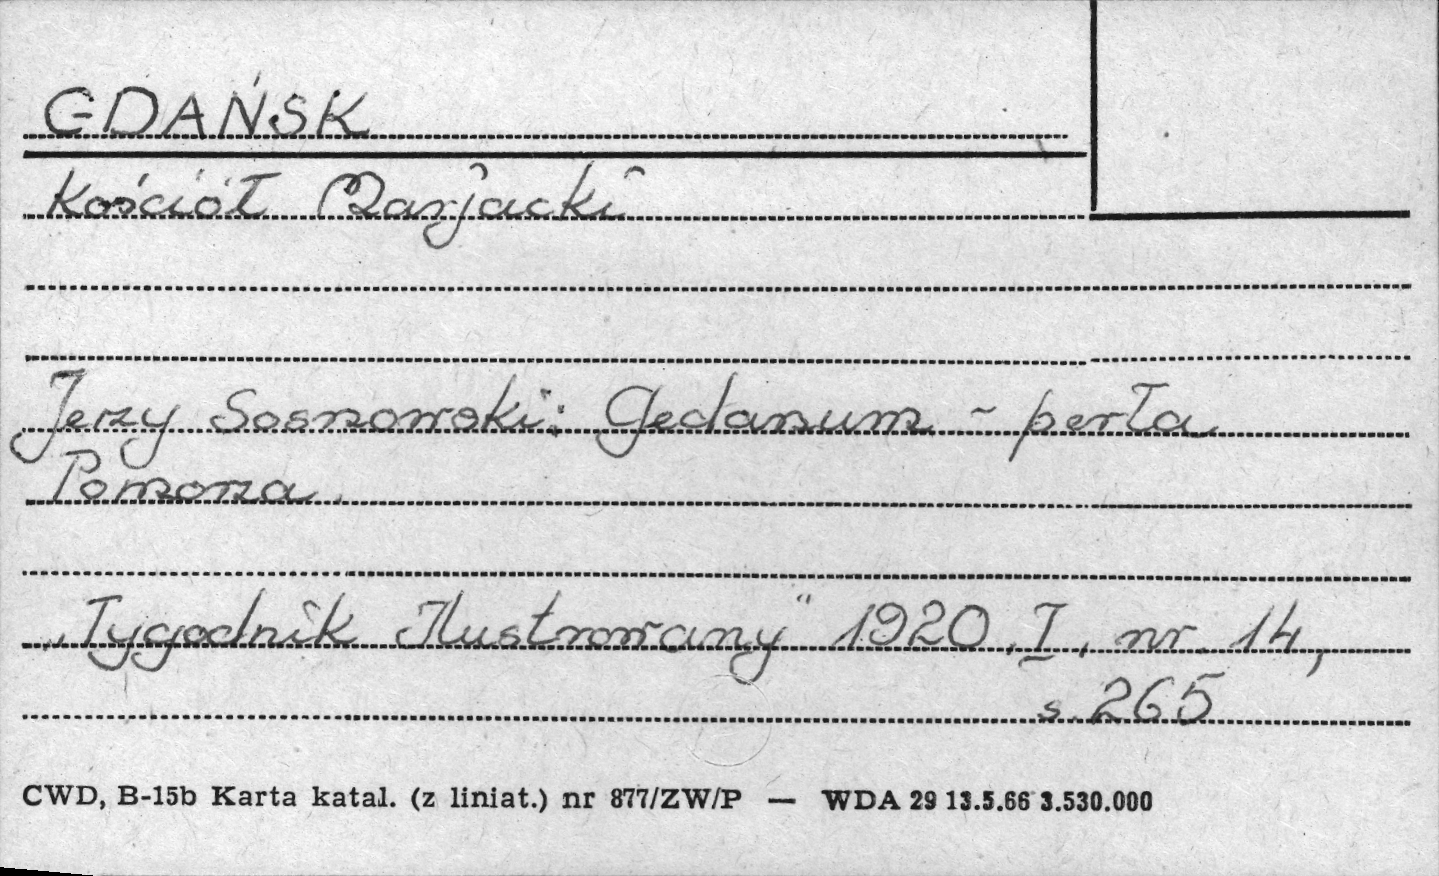 GDAŃSK
Kościół Marjacki
Jerzy Sosnowski: Gedanum - perła
Pomorza.
„Tygodnik Ilustrowany" 1920, I, nr. 14,
s. 265
CWD, B-15b Karta katal. (z liniat.) nr 877/ZW/P — WDA 29 13.5.66 3.530.000